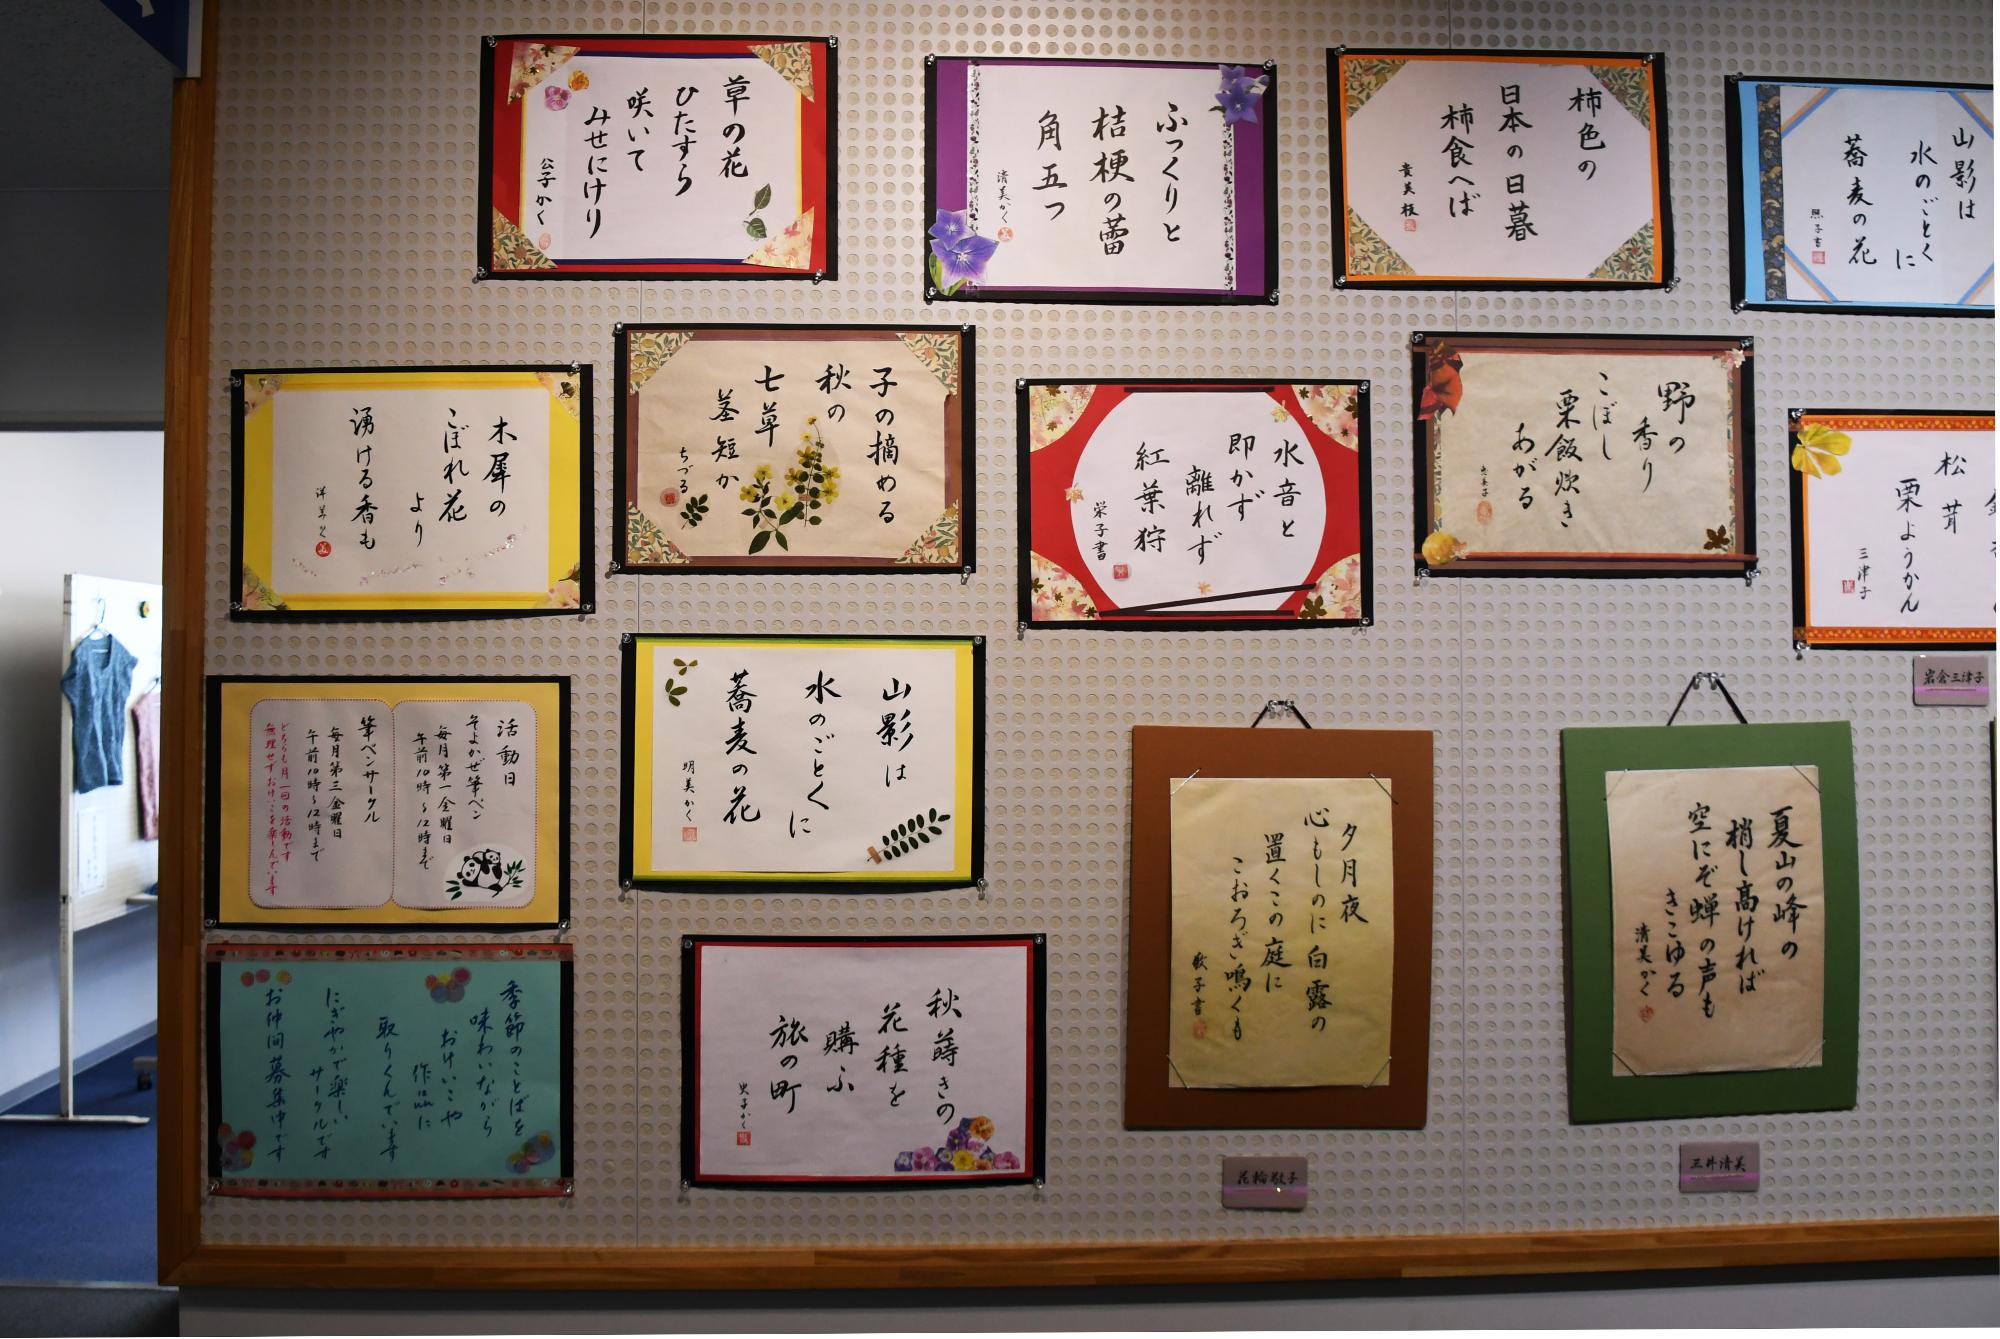 草の花
ひたすら
咲いて
みせにけり
公子かく
ふっくりと
桔梗の蕾
角五つ
清美かく
柿色の
日本の日暮
柿食へば
貴美枝
山影は
水のごとく
に
蕎麦の花
照子書
木犀の
こぼれ花
より
湧ける香も
洋美かく
子の摘める
秋の
七草
茎短か
ちづる
水音と
即かず
離れず
紅葉狩
栄子書
野の
香り
こぼし
栗飯炊き
あがる
松茸
栗ようかん
三津子
岩倉三津子
活動日
そよかぜ筆ペン
毎月第一金曜日
午前10時〜12時まで
筆ペンサークル
毎月第三金曜日
午前10時〜12時まで
どちらも月一回の活動です
無理せずおけいこを楽しんでいます
山影は
水のごとく
に
蕎麦の花
明美かく
夕月夜
心もしのに白露の
置くこの庭に
こおろぎ鳴くも
敬子書
花輪敬子
夏山の峰の
梢し高ければ
空にぞ蝉の声も
きこゆる
清美かく
三井清美
季節のことばを
味わいながら
おけいこや
作品に
取りくんでいます
にぎやかで楽しい
サークルです
お仲間募集中です
秋蒔きの
花種を
購ふ
旅の町
史子かく